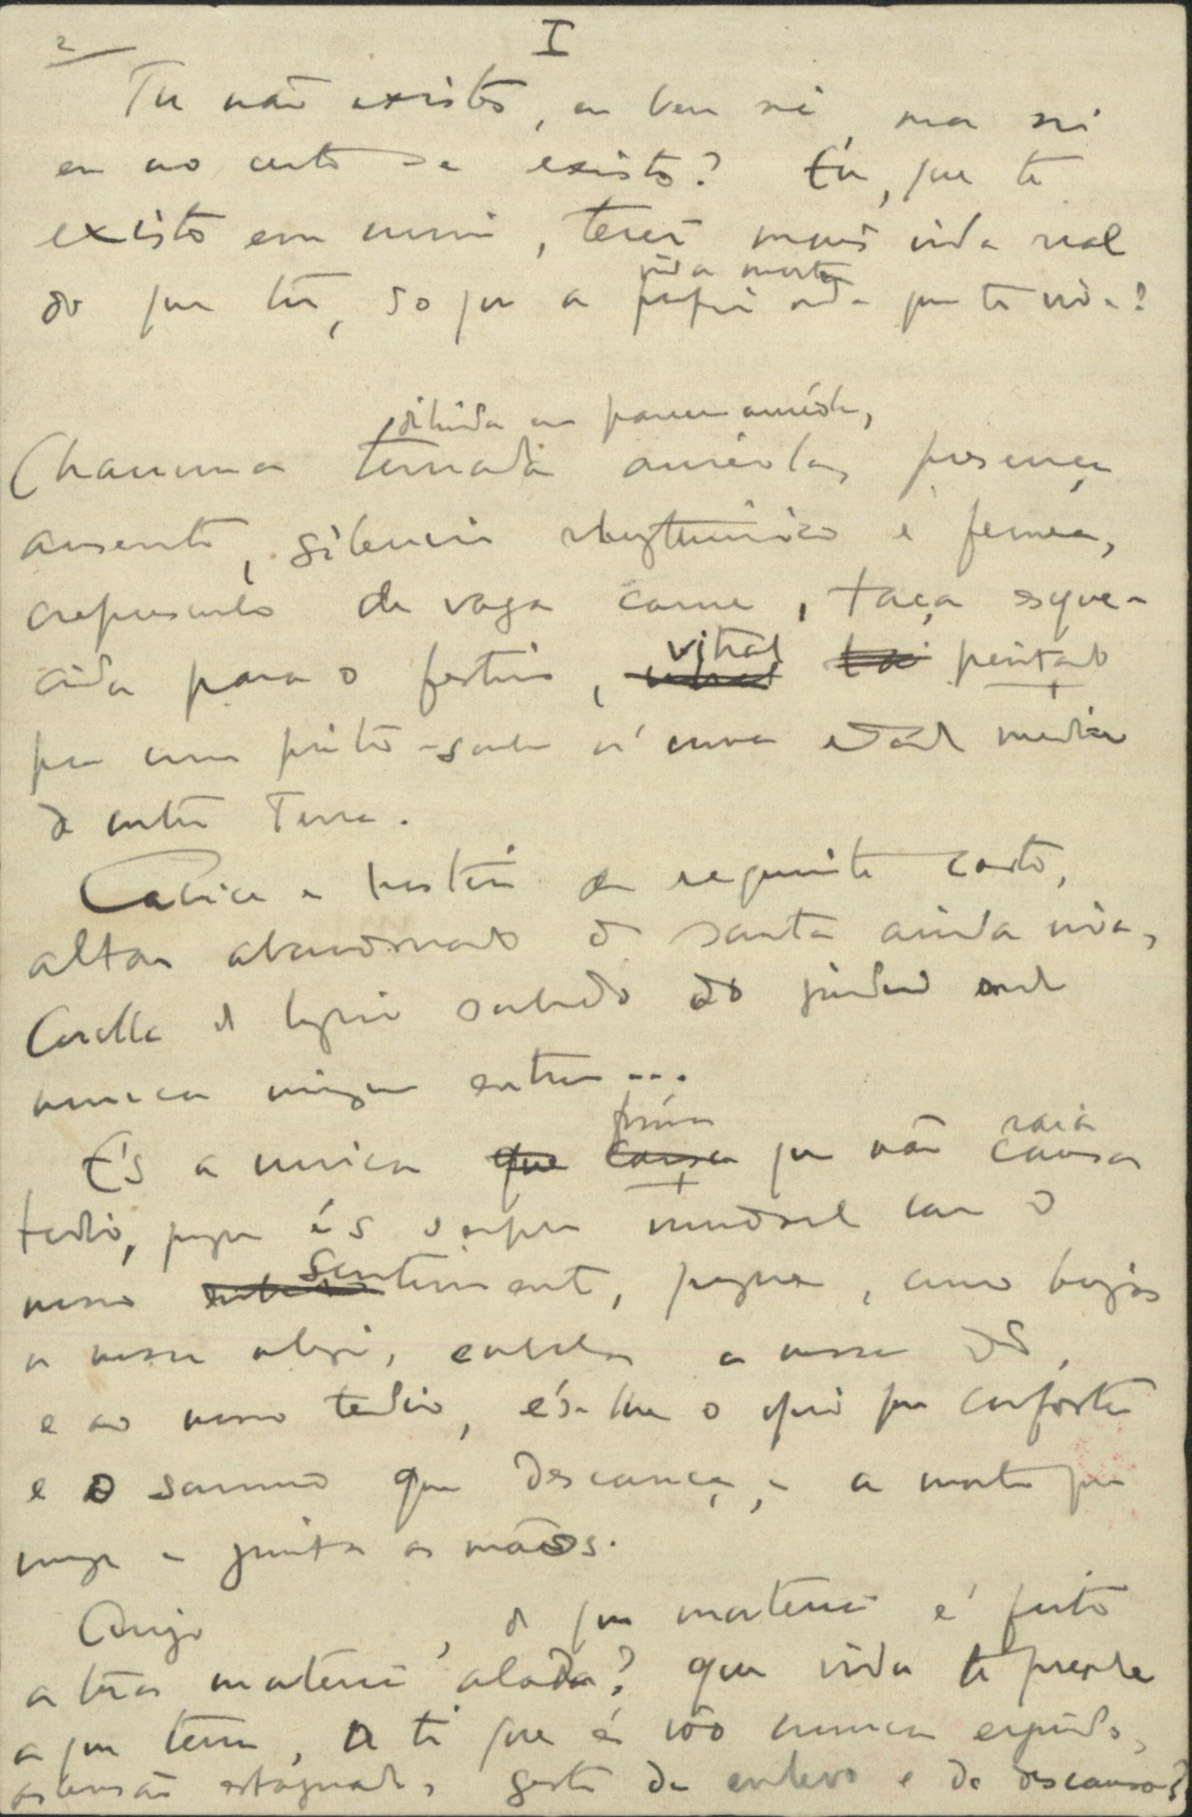 2
I
Tu não existes, eu bem sei, mas sei
eu ao certo se existo? Eu, que te
existo em mim, terei mais vida real
do que tu, do que a propria vida que te vive?
vida morta
diluida em panem aureola,
Chamma tornada aureola, presença
ausente, silencio rhythmico e femea,
crepusculo de vaga carne, taça esque-
cida para o festim, vitral pintado
por um pintor-sonho n'uma edade media
de outra Terra.
Calice e hostia de requinte casto,
altar abandonado de santa ainda viva,
Corolla de lyrio sonhado do jardim onde
nunca ninguem entrou...
És a unica que causa que não causa
fórma
raia
tedio, porque és sempre mudavel com o
nosso sentimento, porque, como beijas
a nossa alegria, embalas a nossa dôr,
e ao nosso tedio, és-lhe o opio que conforta
e o somno que descança, e a morte que
cruza e junta as mãos.
Anjo , de que materia é feita
a tua materia alada? que vida te prende
a que terra, a ti que és vôo nunca erguido,
ascensão estagnada, gesto de enlevo e de descanso?